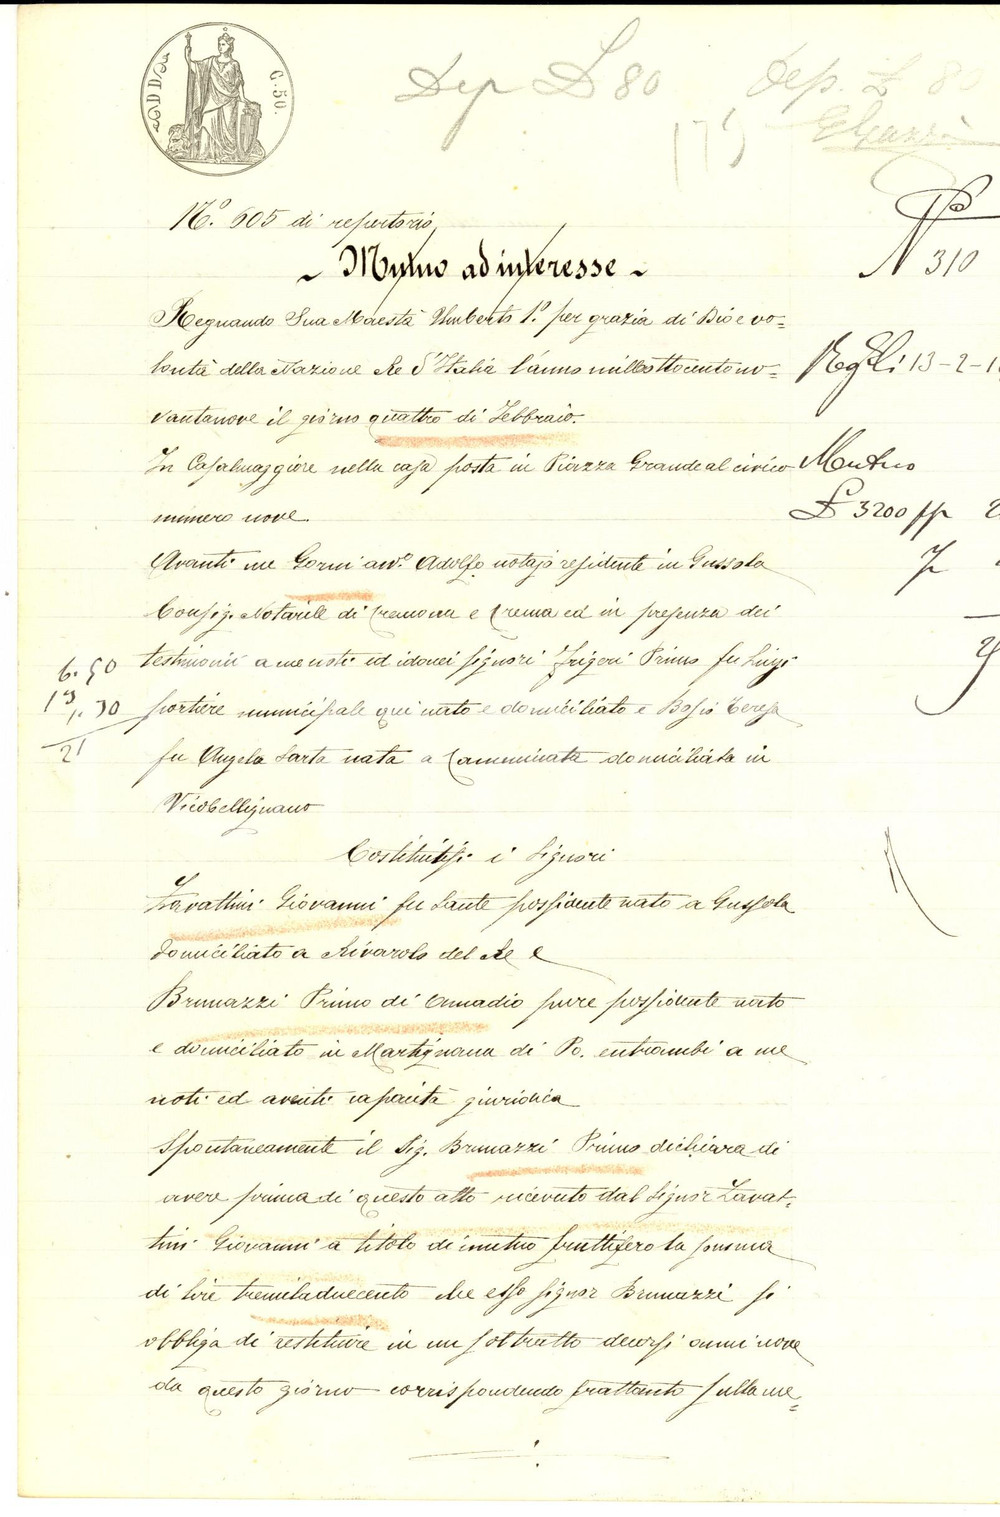 C. 50.
Dep £ 80
dep. £ 80
N.o 605 di repertorio
~ Mutuo ad interesse ~
N 310
Regnando Sua Maestà Umberto 1.o per grazia di Dio e vo=
lontà della Nazione Re d'Italia l'anno milleottocentono=
vantanove il giorno quattro di Febbraio.
13-2-1
In Casalmaggiore nella casa posta in Piazza Grande al civico
numero nove.
Mutuo
£ 3200
Avanti me Gorni avv.o Adolfo notajo residente in Gussola
Consig. Notarile di Cremona e Crema ed in presenza dei
testimonii a me noti ed idonei signori Frigeri Primo fu Luigi
portiere municipale qui nato e domiciliato e Bosio Teresa
fu Angelo sarta nata a Camminata domiciliata in
Vicobellignano
6.50
21
Costituitisi i Signori
Zavattini Giovanni fu Sante possidente nato a Gussola
domiciliato a Rivarolo del Re e
Brunazzi Primo di Amadio pure possidente nato
e domiciliato in Martignana di Po. entrambi a me
noti ed aventi capacità giuridica
Spontaneamente il Sig. Brunazzi Primo dichiara di
avere prima di questo atto ricevuto dal Signor Zavat=
tini Giovanni a titolo di mutuo fruttifero la somma
di lire tremiladuecento che esso signor Brunazzi si
obbliga di restituire in un sol tratto decorsi anni nove
da questo giorno corrispondendo frattanto sulla me=